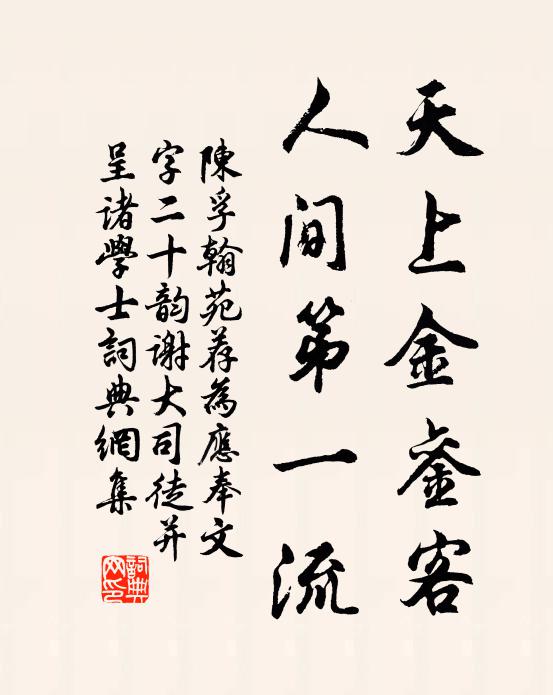 天上金銮客
人间第一流
陳孚翰苑荐為應奉文
字二十韵谢大司徒并
呈诸學士詞典網集
詞典
网印